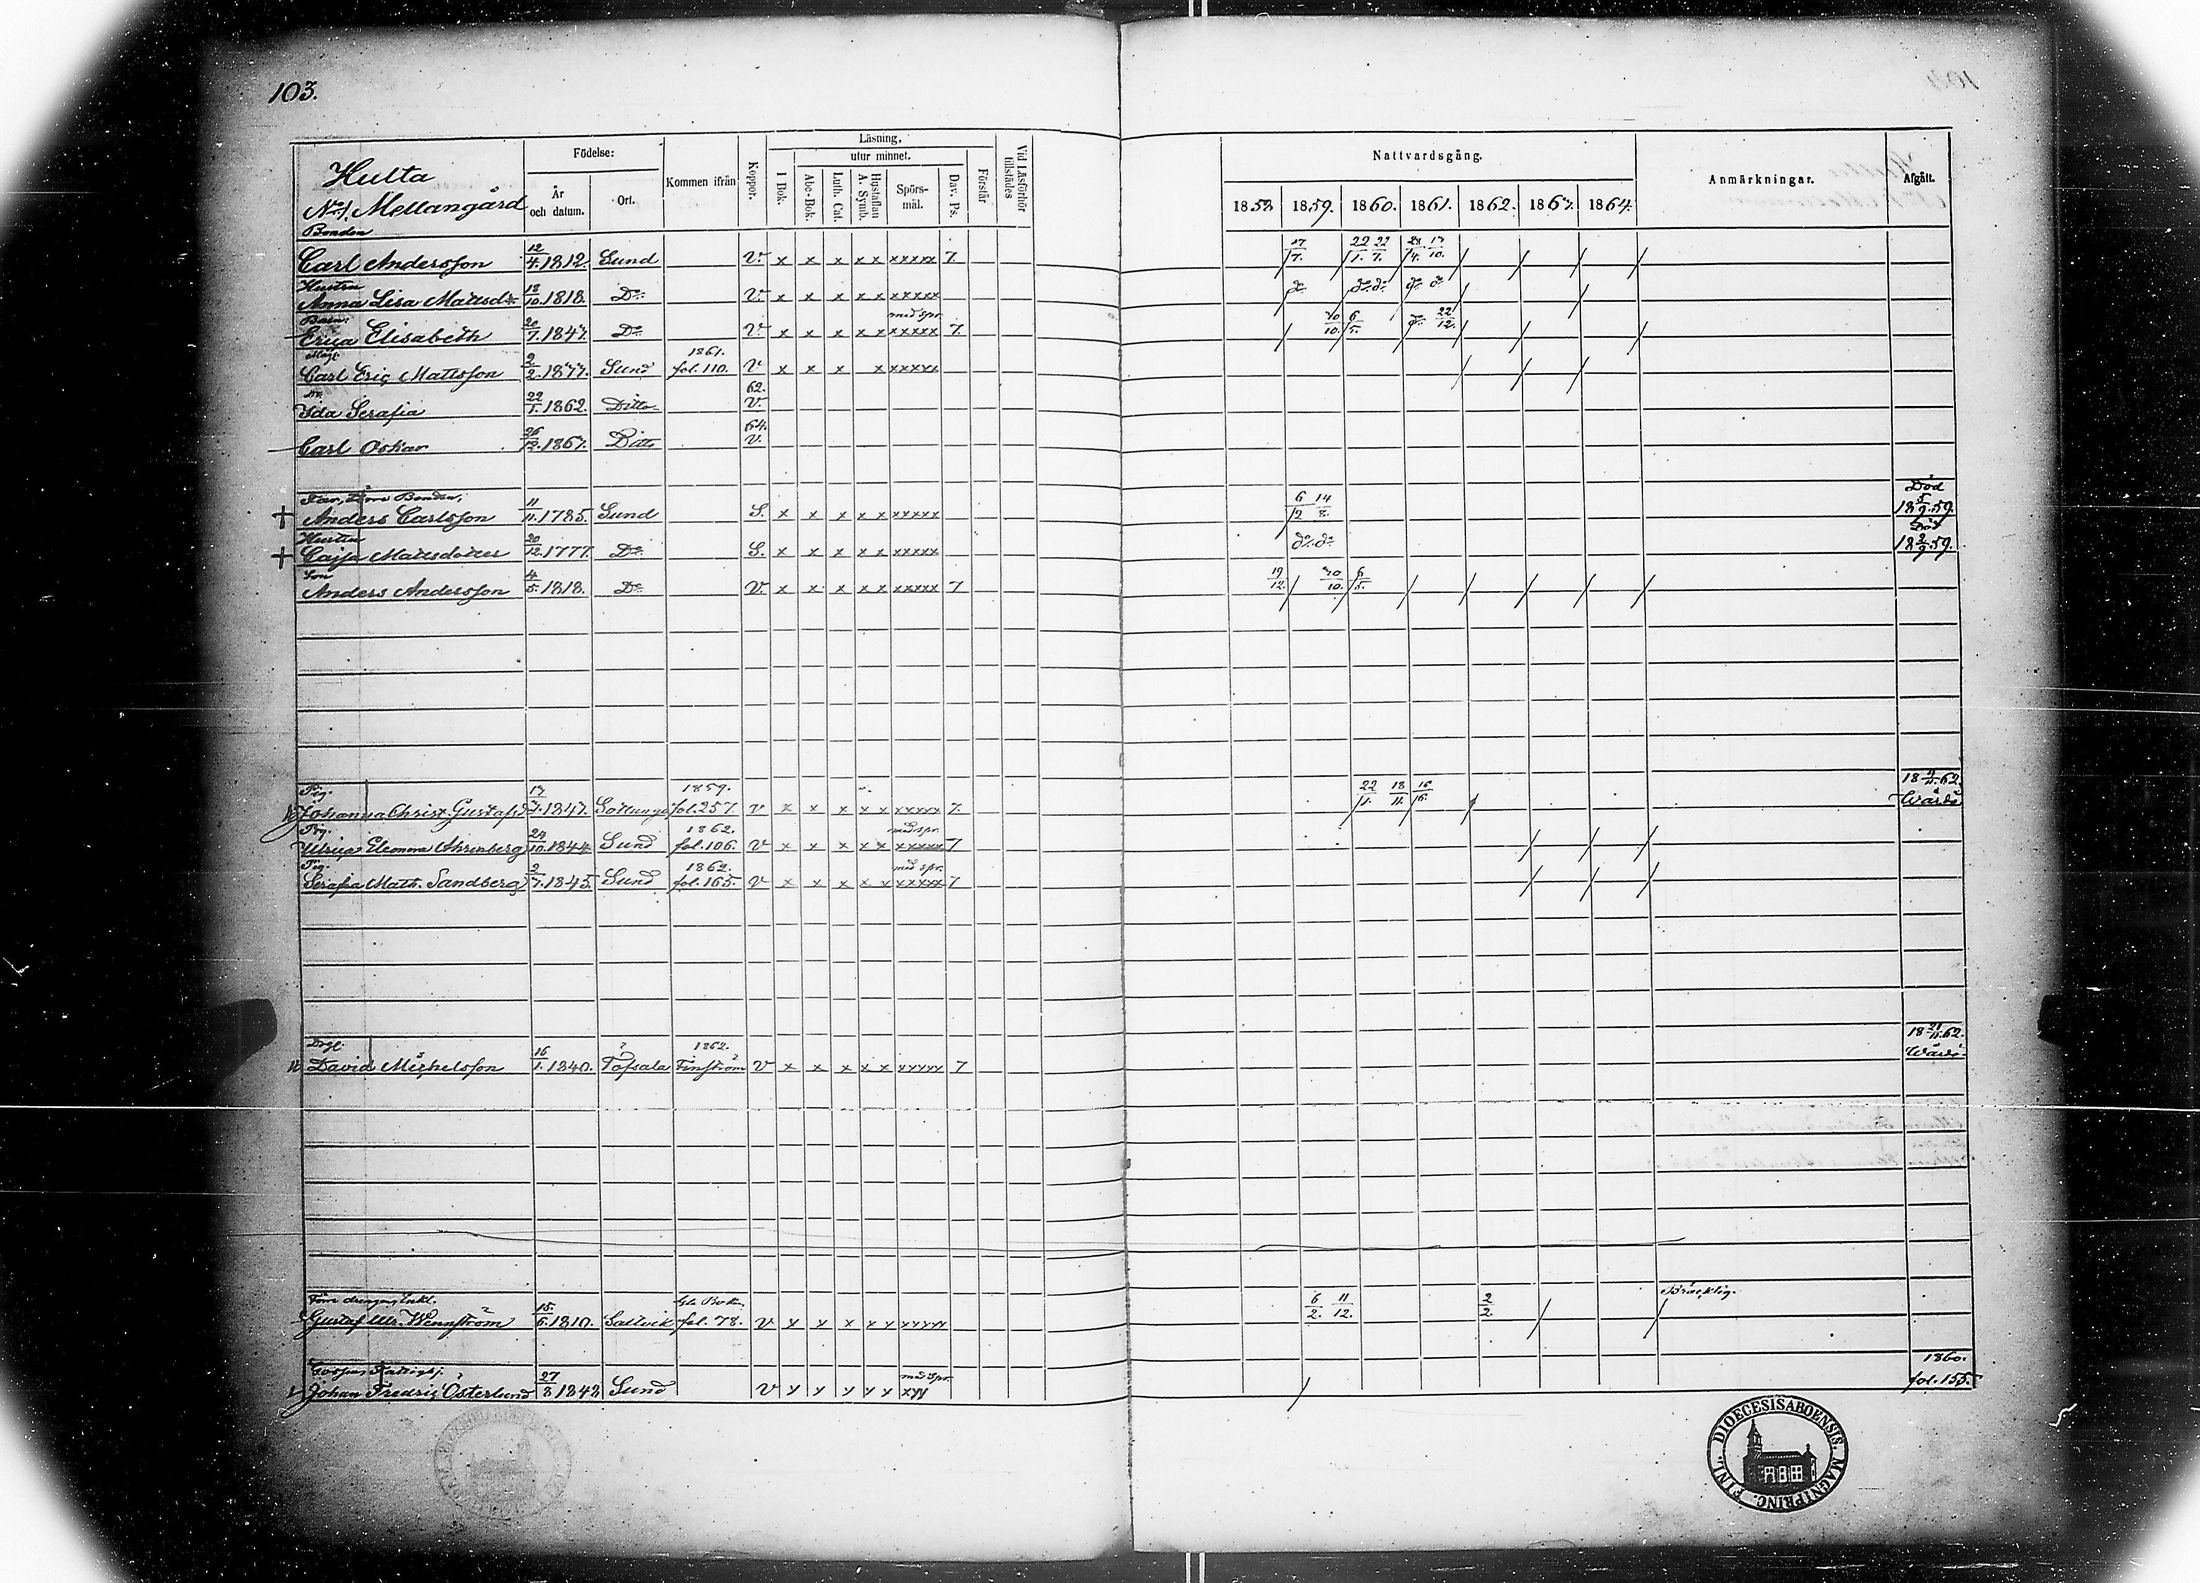 103.
Hulta
No 1. Mellangård
Födelse:
År och datum.
Ort.
Kommen ifrån
Koppor.
Läsning,
utur minnet.
I Bok.
Abc-Bok.
Luth. Cat.
Hustaflan A. Symb.
Spörsmål.
Dav. Ps.
Förstår
Vid Läsförhör tillstädes
Nattvardsgång.
1858. 1859. 1860. 1861. 1862. 1863. 1864.
Anmärkningar.
Afgått.
Bonden
Carl Andersson 12/4 1812. Sund v. x x x x x xxxxx 7. 17/7. 22/1. 22/7. 28/4. 13/10.
Hustru
Anna Lisa Mattsd:r 18/10 1818. D:o V. x x x x x xxxxx d:o d:o d:o d:o d:o
Barn: med spr.
Erica Elisabeth 20/7. 1843. D:o V x x x x x xxxxx 7. 30/10. 6/5. d:o 22/12.
Måg. 1861.
Carl Eric Mattsson 2/2. 1833. Sund fol. 110. V x x x x xxxxx
62.
Ida Serafia 22/1. 1862. Ditto V.
64.
Carl Oskar 26/12. 1863. Ditto V.
Far, Förre Bonden, Död
Anders Carlsson 11/11. 1785. Sund S. x x x x x xxxxx 6/2 14/8. 18 5/9. 59.
Hustru Död
Caisa Mattsdotter 20/12. 1777. D:o S. x x x x x xxxxx d:o d:o 18 2/9. 59.
Son
Anders Andersson 4/5. 1818. D:o V. x x x x x xxxxx 7 19/12. 30/10. 6/5.
Pig. 1859. 62.
Johanna Christ. Gustafsd:r 1843. Sottunga fol. 257. v x x x x x xxxxx 7. 22/1. 18/11. 16/6. Wårdö
Pig. 1862. med spr.
Ulrica Eleonora Ahrenberg 24/10. 1844. Sund fol. 106. V x x x x x xxxxx 7
Pig. 1862. med spr.
Serafia Math. Sandberg 2/7. 1845. Sund fol. 165. V x x x x x xxxxx 7
Dogl. 1862. 18 21/11. 62.
David Michelsson 16/1. 1840. Tofsala Finström V x x x x x xxxxx 7 Wårdö
Förre drengen, Enkl. Gla Boken Bräcklig.
Gustaf Ulr. Wennström 15/6. 1810. Saltvik fol. 78. V x x x x x xxxxx 6/2. 11/12. 2/2.
med spr. 1860.
Johan Fredric Österlund 27/3 1843 Sund V x x x x x xxx fol. 155.
FINL. DIOECESIS ABOENSIS. MAGNI PRINC.